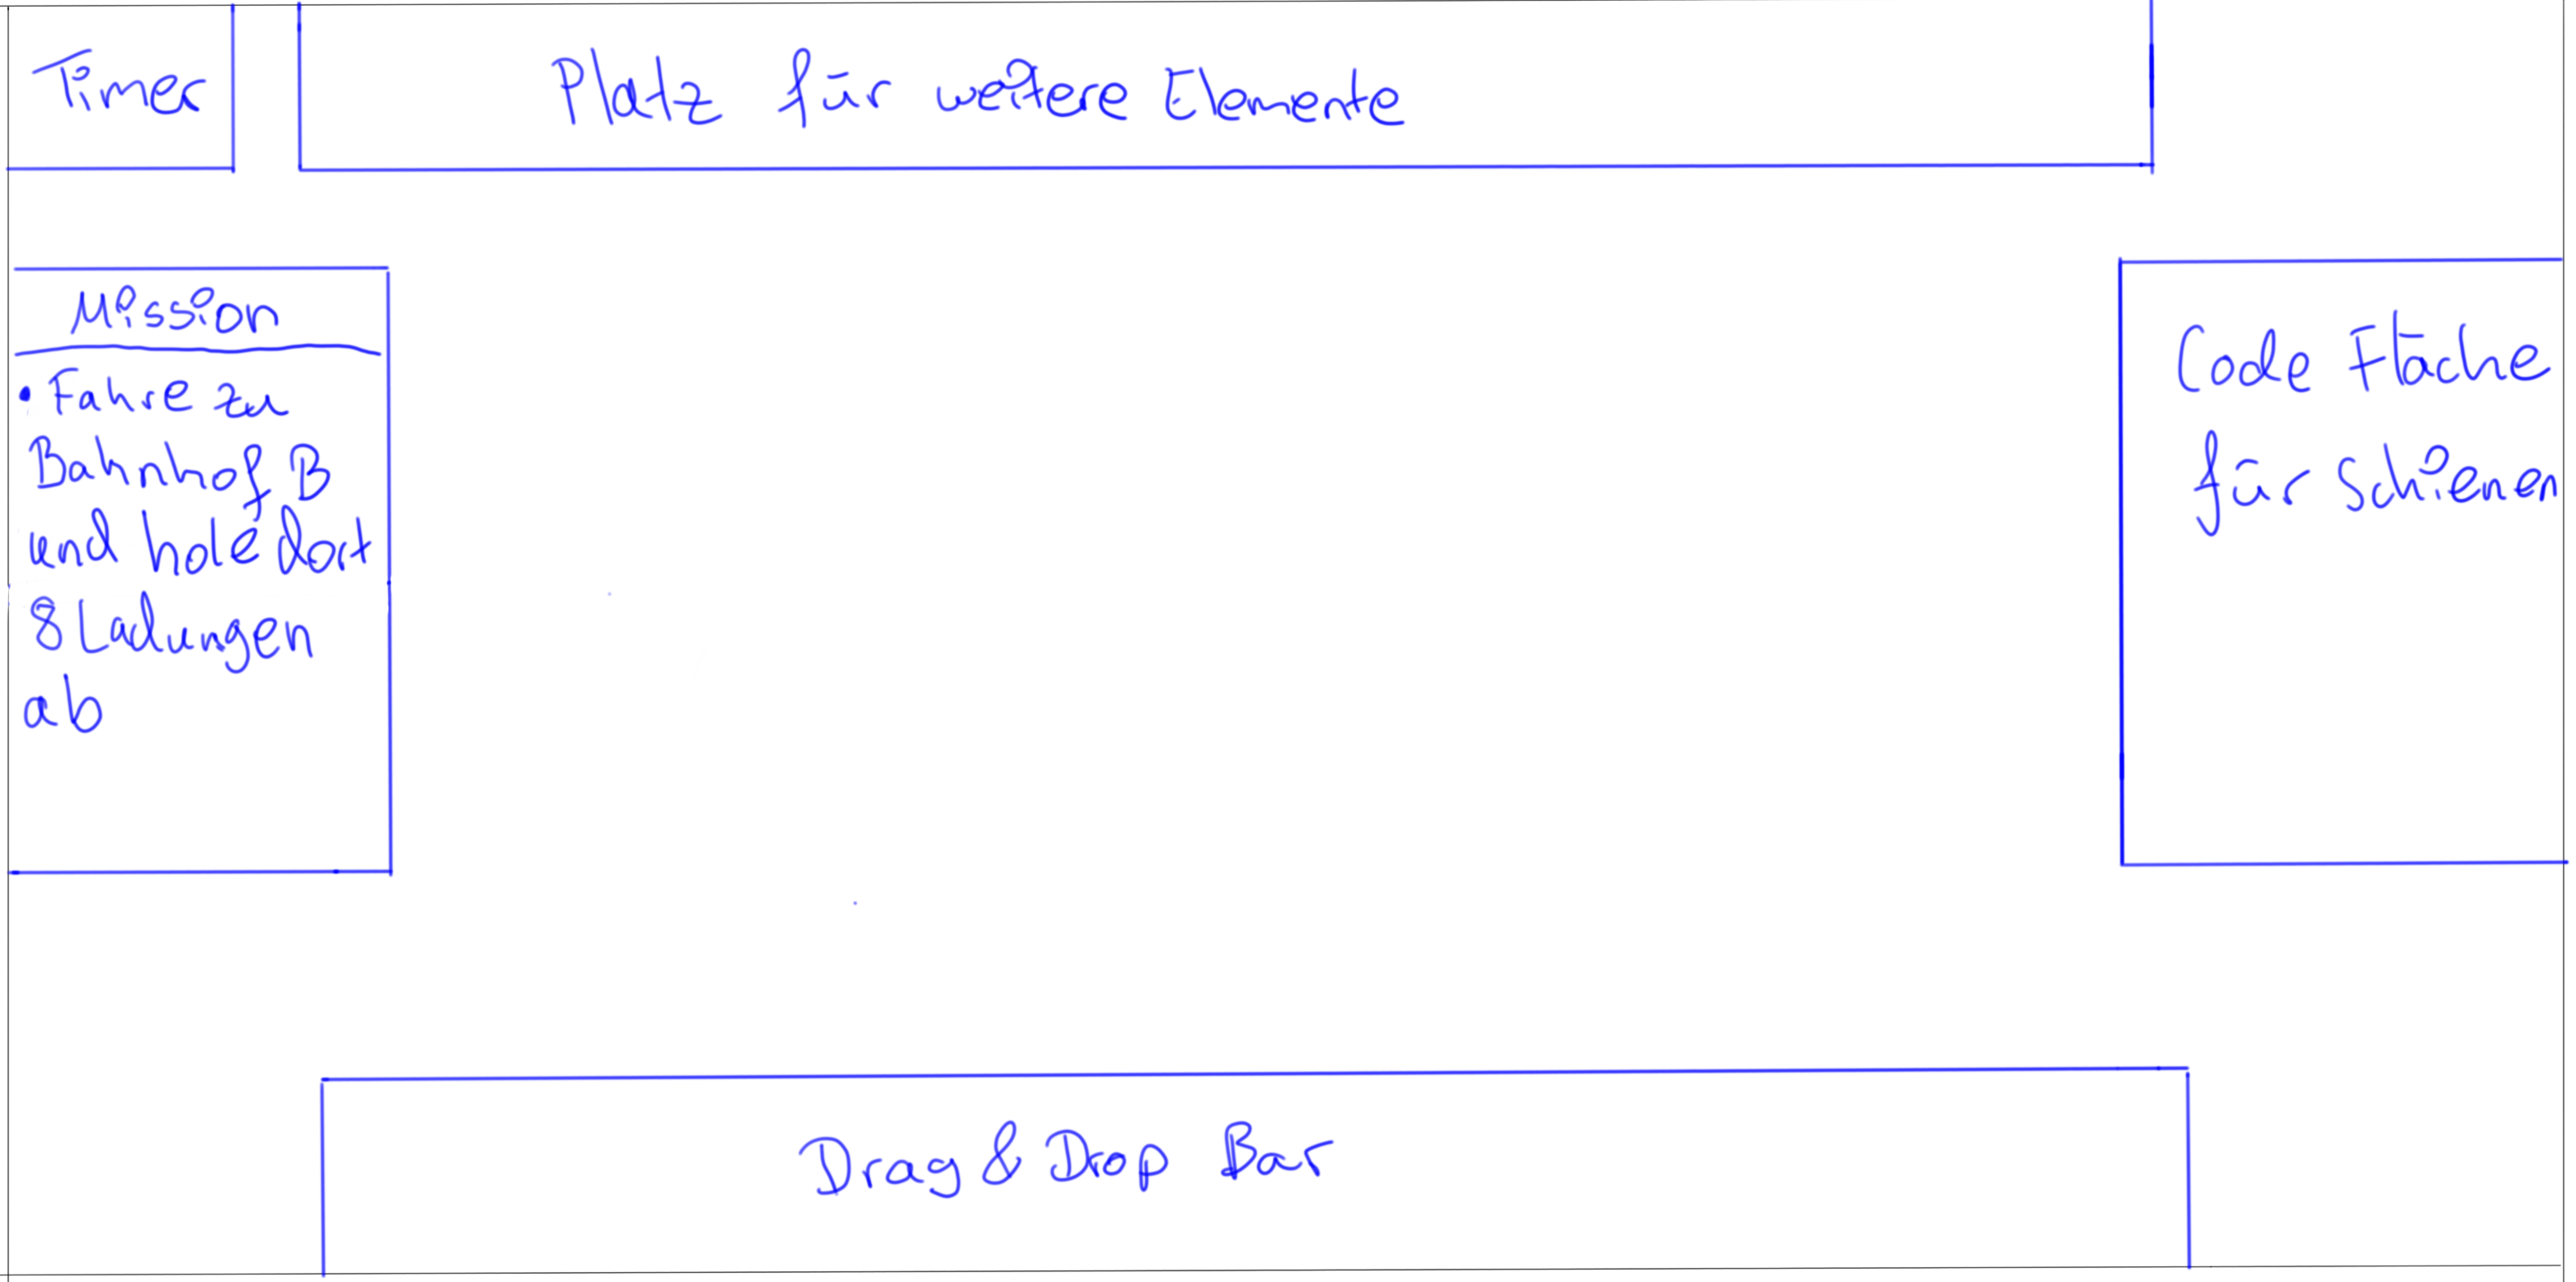 Timer
Platz für weitere Elemente
Mission
• Fahre zu
Bahnhof B
und hole dort
8 Ladungen
ab
Code Fläche
für Schienen
Drag & Drop Bar